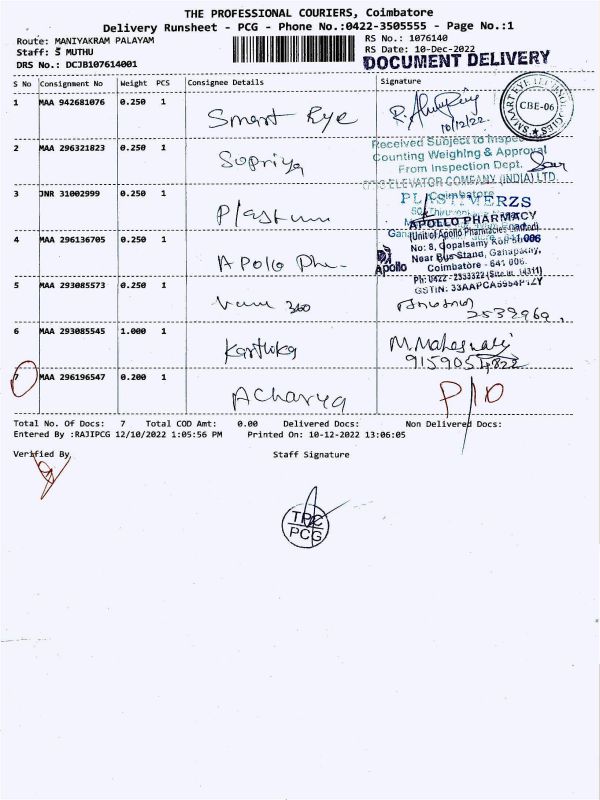 THE PROFESSIONAL COURIERS, Coimbatore
Delivery Runsheet - PCG - Phone No.:0422-3505555 - Page No.:1
Route: MANIYAKRAM PALAYAM
RS No.: 1076140
Staff: S MUTHU
RS Date: 10-Dec-2022
DRS No.: DCJB107614001
DOCUMENT DELIVERY
S No Consignment No Weight PCS Consignee Details Signature
1 MAA 942681076 0.250 1 Smart Eye
10/12/22
SMAART EYE TECHNOLOGIES
CBE-06
2 MAA 296321823 0.250 1 Supriya
Received Subject to Inspe
Counting Weighing & Approval
From Inspection Dept.
ELEVATOR COMPANY (INDIA) LTD.
Coimbatore
3 JNR 31002999 0.250 1
APOLLO PHARMACY
(Unit of Apollo Pharmacies Limited)
4 MAA 296136705 0.250 1 Apolo Pha-
Apollo
No: 8, Gopalsamy
Near Bus Stand, Ganapathy,
Coimbatore - 641 006.
Ph: 0422 - 2533322 (Site id: 14311)
5 MAA 293085573 0.250 1 360
2532969
6 MAA 293085545 1.000 1 Karthika
M. Maheswari
9159054822
7 MAA 296196547 0.200 1 Acharya
Total No. Of Docs: 7 Total COD Amt: 0.00 Delivered Docs: Non Delivered Docs:
Entered By :RAJIPCG 12/10/2022 1:05:56 PM Printed On: 10-12-2022 13:06:05
Verified By
Staff Signature
TPC
PCG